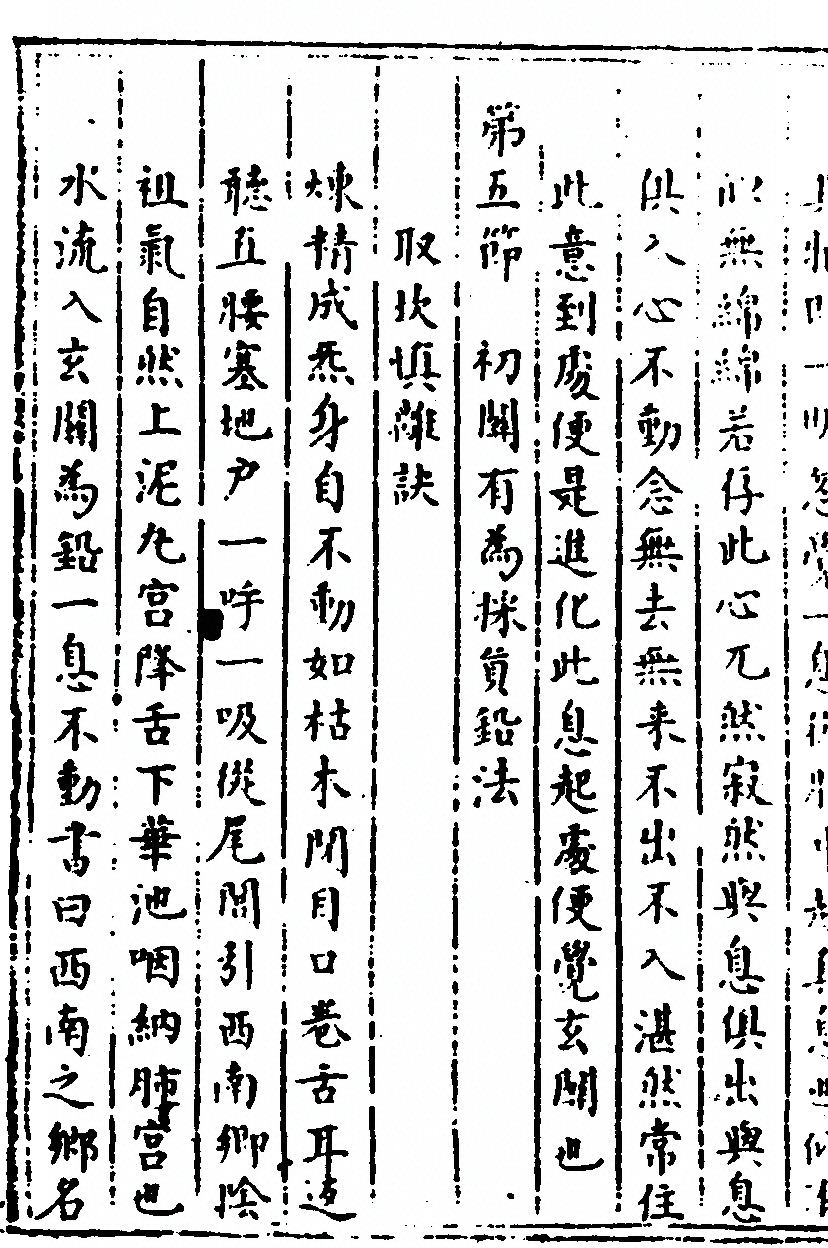 似無綿綿若存此心兀然寂然與息俱出與息
俱入心不動念無去無来不出不入湛然常住
此意到處便是進化此息起處便覺玄關也
第五節　初關有為採眞鉛法
取坎填離訣
煉精成炁身自不動如枯木閉目口卷舌耳逆
聽五腰塞地户一呼一吸從尾閭引西南鄉陰
祖氣自然上泥丸宮降舌下華池咽納肺宮也
水流入玄關為鉛一息不動書曰西南之鄉名